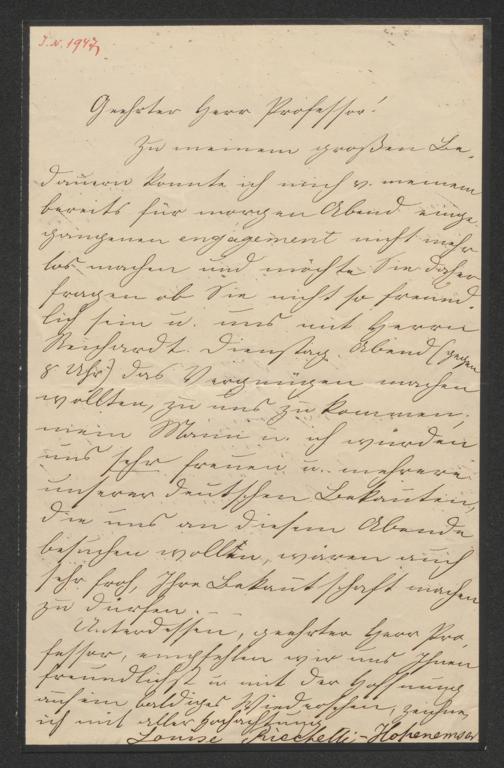 J. N. 1947
Geehrter Herr Professor!
Zu meinem großen Be-
dauern konnte ich mich v. meinem
bereits für morgen Abend einge
gangenen engagement nicht mehr
los machen und möchte Sie daher
fragen ob Sie nicht so freund-
lich sein u. uns mit Herrn
Reichardt Dienstag Abend (gegen
8 Uhr) das Vergnügen machen
wollten, zu uns zu kommen,
mein Mann u. ich würden
uns sehr freuen u. mehrere
unserer deutschen Bekannten,
die uns an diesem Abende
besuchen wollen, wären auch
sehr froh, Ihre Bekanntschaft machen
zu dürfen. –
Unterdessen, geehrter Herr Pro-
fessor, empfehlen wir uns Ihnen
freundlichst u. mit der Hoffnung
auf ein baldiges Wiedersehen, zeichne
ich mit aller Hochachtung
Louise Ricchetti-Hohenemser